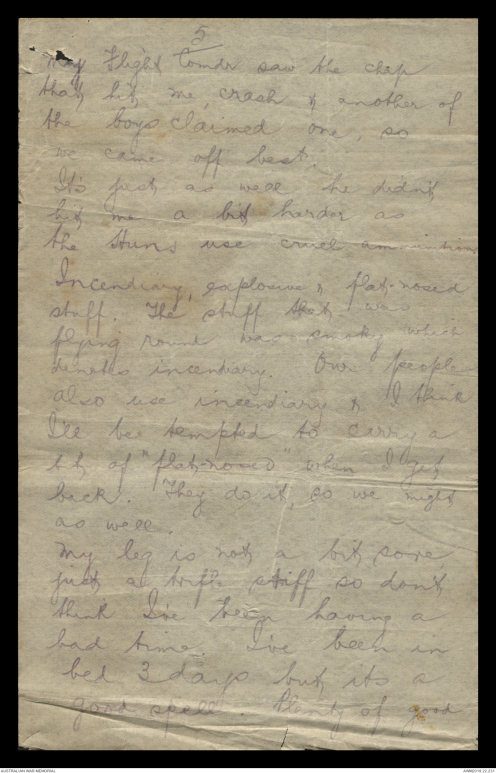 5
My Flight Comdr saw the chap
that hit me, crash & another of
the boys claimed one, so
we came off best.
It's just as well he didn't
hit me a bit harder as
the Huns use cruel ammunition
Incendiary, explosive & flat-nosed
stuff. The stuff that was
flying round was smoky which
denotes incendiary. Our people
also use incendiary & I think
I'll be tempted to carry a
bit of "flat-nosed" when I get
back. They do it, so we might
as well.
My leg is not a bit sore,
just a trifle stiff so don't
think I've been having a
bad time. I've been in
bed 3 days but its a
good spell. Plenty of good
AUSTRALIAN WAR MEMORIAL